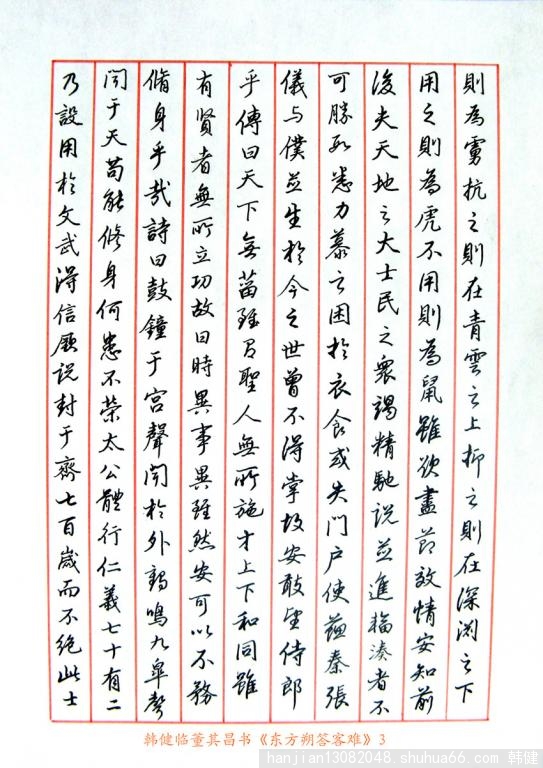 則為虜抗之則在青雲之上抑之則在深淵之下
用之則為虎不用則為鼠雖欲盡節效情安知前
後夫天地之大士民之衆竭精馳說並進輻湊者不
可勝數悉力慕之困於衣食或失門戶使蘇秦張
儀與僕並生於今之世曾不得掌故安敢望侍郎
乎傳曰天下無菑雖有聖人無所施才上下和同雖
有賢者無所立功故曰時異事異雖然安可以不務
脩身乎哉詩曰鼓鐘于宮聲聞於外鶴鳴九皋聲
聞于天苟能修身何患不榮太公體行仁義七十有二
乃設用於文武得信厥說封于齊七百歲而不絕此士
韩健临董其昌书《东方朔答客难》3
hanjian13082048.shuhua66.com 韩健